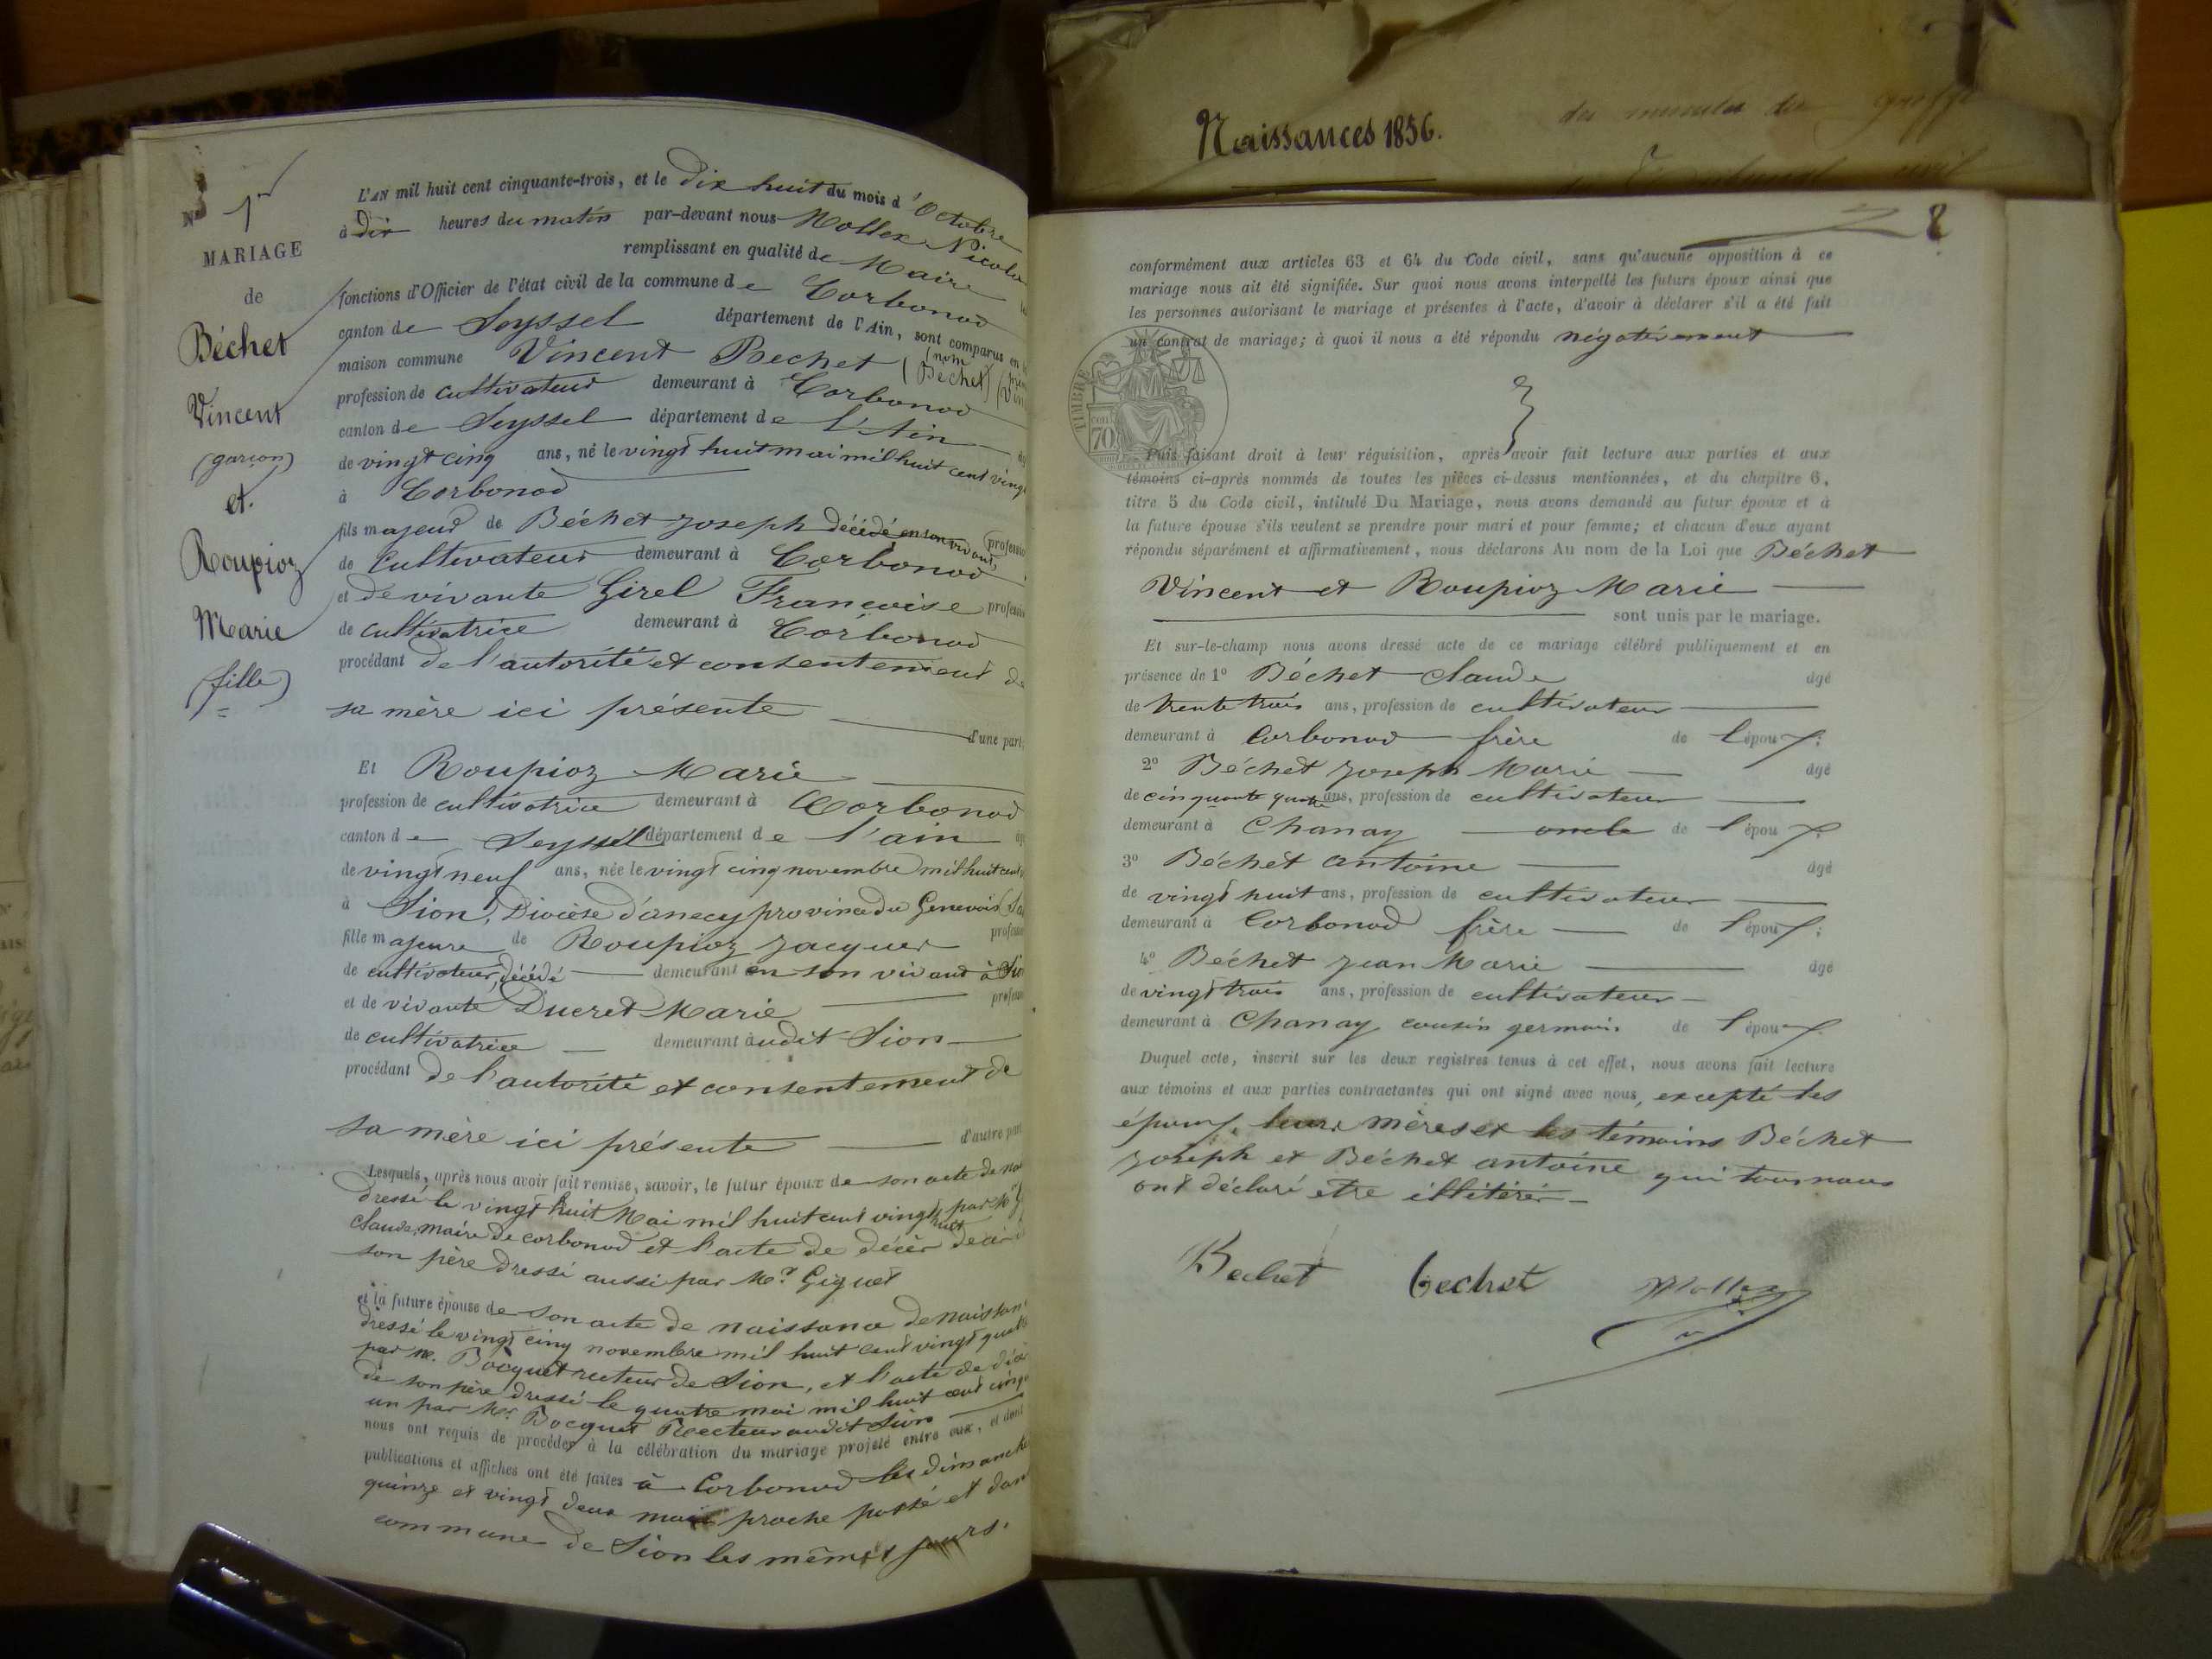 No 1er
MARIAGE
de
Béchet
Vincent
(garçon)
et
Roupioz
Marie
(fille)
L'AN mil huit cent cinquante-trois, et le dix huit du mois d'Octobre
à dix heures du matin par-devant nous Mollex Nicolas
remplissant en qualité de Maire
fonctions d'Officier de l'état civil de la commune de Corbonod
canton de Seyssel département de l'Ain, sont comparus en
maison commune Vincent Bechet (nom Béchet)
profession de cultivateur demeurant à Corbonod
canton de Seyssel département de l'Ain
de vingt cinq ans, né le vingt huit mai mil huit cent vingt
à Corbonod
fils majeur de Béchet Joseph décédé en son vivant, profession
de cultivateur demeurant à Corbonod
et de vivante Girel Françoise profession
de cultivatrice demeurant à Corbonod
procédant de l'autorité et consentement de
sa mère ici présente d'une part
Et Roupioz Marie
profession de cultivatrice demeurant à Corbonod
canton de Seyssel département de l'ain
de vingt neuf ans, née le vingt cinq novembre mil huit cent
à Sion, Diocèse d'anecy province du Genevois
fille majeure de Roupioz Jacques profession
de cultivateur, décédé demeurant en son vivant à Sion
et de vivante Ducret Marie profession
de cultivatrice demeurant audit Sion
procédant de l'autorité et consentement de
sa mère ici présente d'autre part
Lesquels, après nous avoir fait remise, savoir, le futur époux de son acte de
dressé le vingt huit Mai mil huit cent vingt huit par Mr
Claude, maire de corbonod et l'acte de décès de
son père dressé aussi par Mr Giguet
et la future épouse de son acte de naissance de naissan
dressé le vingt cinq novembre mil huit cent vingt quatre
par m. Bocquet recteur de Sion, et l'acte de décè
de son père dressé le quatre mai mil huit cent cinq
un par Mr Bocquet Recteur audit Sion
nous ont requis de procéder à la célébration du mariage projeté entre eux, et dont
publications et affiches ont été faites à Corbonod les dimanche
quinze et vingt deux mai proche passé et dans
commune de Sion les mêmes jours.
Naissances 1856.
des minutes du greffe
Tribunal civil
8
conformément aux articles 63 et 64 du Code civil, sans qu'aucune opposition à ce
mariage nous ait été signifiée. Sur quoi nous avons interpellé les futurs époux ainsi que
les personnes autorisant le mariage et présentes à l'acte, d'avoir à déclarer s'il a été fait
un contrat de mariage; à quoi il nous a été répondu négativement
TIMBRE
70
Puis faisant droit à leur réquisition, après avoir fait lecture aux parties et aux
témoins ci-après nommés de toutes les pièces ci-dessus mentionnées, et du chapitre 6,
titre 5 du Code civil, intitulé Du Mariage, nous avons demandé au futur époux et à
la future épouse s'ils veulent se prendre pour mari et pour femme; et chacun d'eux ayant
répondu séparément et affirmativement, nous déclarons Au nom de la Loi que Béchet
Vincent et Roupioz Marie
sont unis par le mariage.
Et sur-le-champ nous avons dressé acte de ce mariage célébré publiquement et en
présence de 1° Béchet Claude âgé
de trente trois ans, profession de cultivateur
demeurant à Corbonod frère de l'époux;
2° Béchet Joseph Marie âgé
de cinquante quatre ans, profession de cultivateur
demeurant à Chanay oncle de l'époux;
3° Béchet antoine âgé
de vingt huit ans, profession de cultivateur
demeurant à Corbonod frère de l'époux;
4° Béchet Jean Marie âgé
de vingt trois ans, profession de cultivateur
demeurant à Chanay cousin germain de l'époux
Duquel acte, inscrit sur les deux registres tenus à cet effet, nous avons fait lecture
aux témoins et aux parties contractantes qui ont signé avec nous, excepté les
époux, leurs mères et les témoins Béchet
Joseph et Béchet antoine qui tous nous
ont déclaré etre illitérés
Bechet bechet Mollex